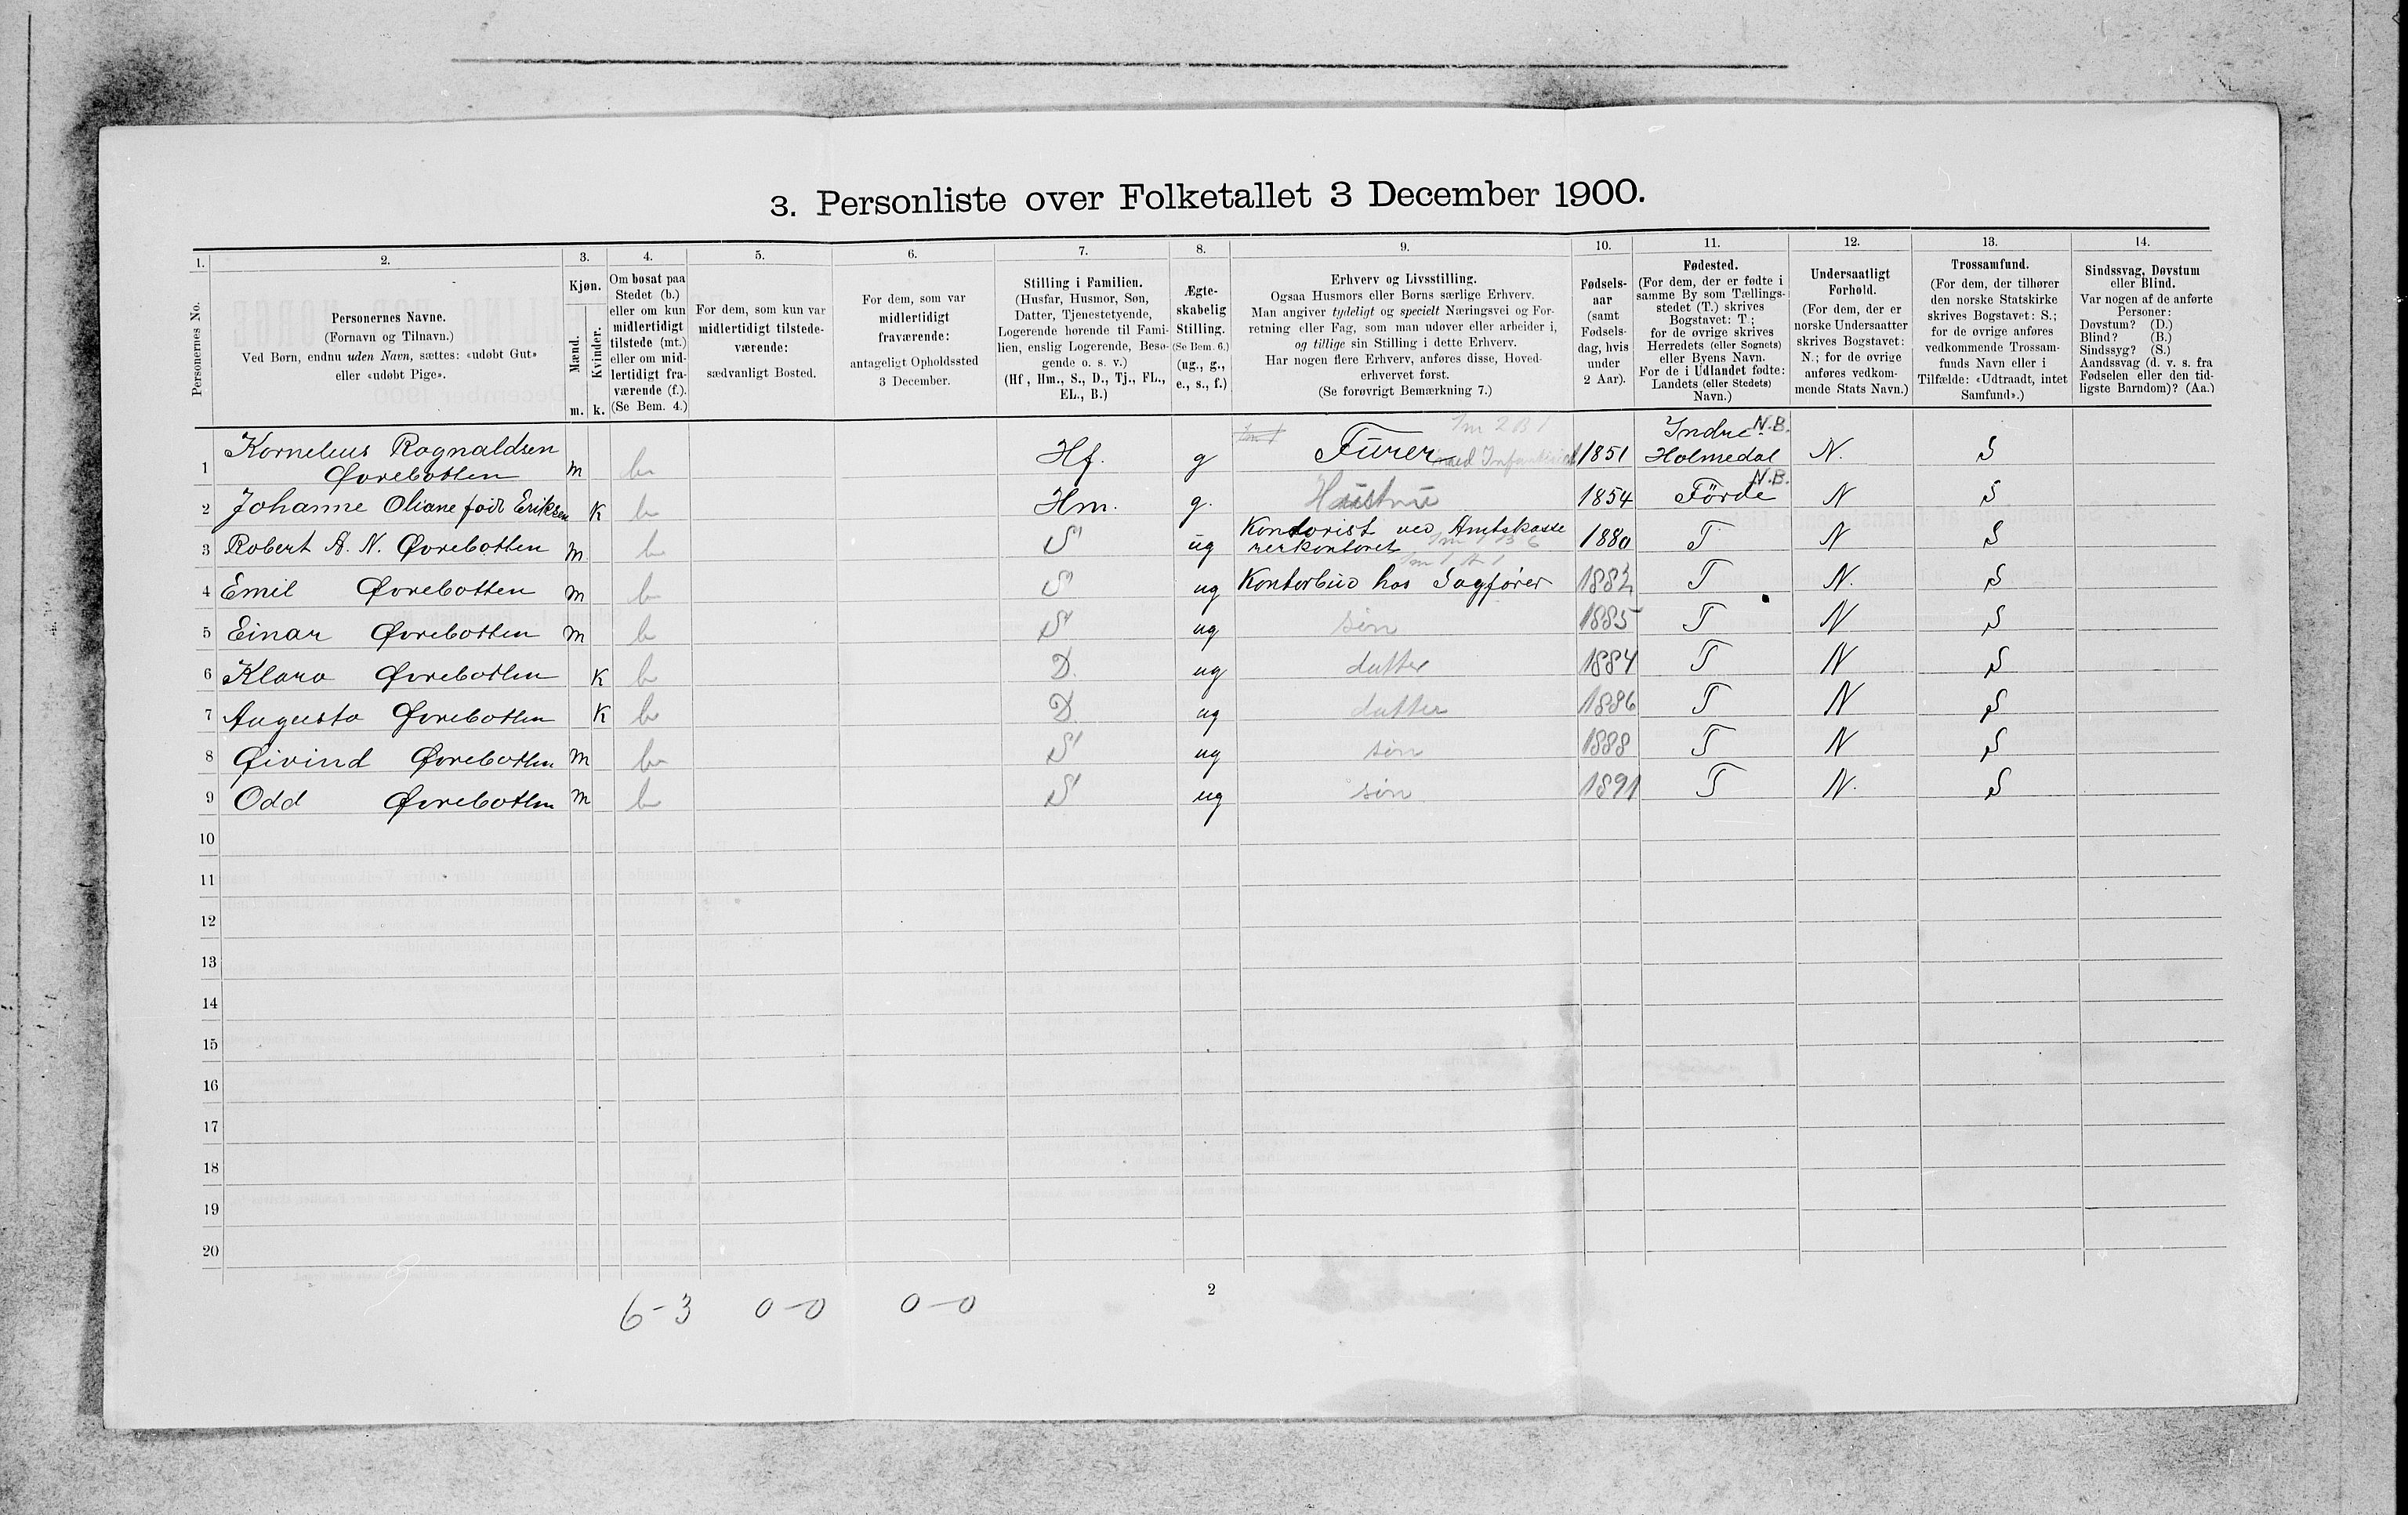 3. Personliste over Folketallet 3 December 1900.
1. 2. 3. 4. 5. 6. 7. 8. 9. 10. 11. 12. 13. 14.
Personernes No.
Personernes Navne.
(Fornavn og Tilnavn.)
Ved Børn, endnu uden Navn, sættes: «udøbt Gut»
eller «udøbt Pige».
Kjøn.
Mænd.
Kvinder.
m. k.
Om bosat paa
Stedet (b.)
eller om kun
midlertidigt
tilstede (mt.)
eller om mid-
lertidigt fra-
værende (f.).
(Se Bem. 4.)
For dem, som kun var
midlertidigt tilstede-
værende:
sædvanligt Bosted.
For dem, som var
midlertidigt
fraværende:
antageligt Opholdssted
3 December.
Stilling i Familien.
(Husfar, Husmor, Søn,
Datter, Tjenestetyende,
Logerende hørende til Fami-
lien, enslig Logerende, Besø-
gende o. s. v.)
(Hf., Hm., S., D., Tj., FL.,
EL., B.)
Ægte-
skabelig
Stilling.
(Se Bem. 6.)
(ug., g.,
e., s., f.)
Erhverv og Livsstilling.
Ogsaa Husmors eller Børns særlige Erhverv.
Man angiver tydeligt og specielt Næringsvei og For-
retning eller Fag, som man udøver eller arbeider i,
og tillige sin Stilling i dette Erhverv.
Har nogen flere Erhverv, anføres disse, Hoved-
erhvervet først.
(Se forøvrigt Bemærkning 7.)
Fødsels-
aar
(samt
Fødsels-
dag, hvis
under
2 Aar).
Fødested.
(For dem, der er fødte i
samme By som Tællings-
stedet (T.) skrives
Bogstavet: T;
for de øvrige skrives
Herredets (eller Sognets)
eller Byens Navn.
For de i Udlandet fødte:
Landets (eller Stedets)
Navn.)
Undersaatligt
Forhold.
(For dem, der er
norske Undersaatter
skrives Bogstavet:
N.; for de øvrige
anføres vedkom-
mende Stats Navn.)
Trossamfund.
(For dem, der tilhører
den norske Statskirke
skrives Bogstavet: S.;
for de øvrige anføres
vedkommende Trossam-
funds Navn eller i
Tilfælde: «Udtraadt, intet
Samfund».)
Sindssvag, Døvstum
eller Blind.
Var nogen af de anførte
Personer:
Døvstum? (D.)
Blind? (B.)
Sindssyg? (S.)
Aandssvag (d. v. s. fra
Fødselen eller den tid-
ligste Barndom)? (Aa.)
Im 1 Im 2 B 1 Indre N.B.
1 Kornelius Ragnaldsen m b Hf. g Furer med Infanteriet 1851 Holmedal N. S
Øvrebotten N.B.
2 Johanne Oliane født Eriksen K b Hm. g. Hustru 1854 Förde N S
3 Robert A. N. Øvrebotten m b S ug Kontorist ved Amtskasse 1880 T N S
rerkontoret Im 1 B 6
Im 1 A 1
4 Emil Øvrebotten m b S ug Kontorbud hos Sagfører 1882 T N. S
5 Einar Øvrebotten m b S ug søn 1885 T N S
6 Klara Øvrebotten K b D. ug datter 1884 T N S
7 Augusta Øvrebotten K b D ug datter 1886 T N S
8 Øivind Øvrebotten m b S ug søn 1888 T N S
9 Odd Øvrebotten m b S ug søn 1891 T N. S
10
11
12
13
14
15
16
17
18
19
20
2
6-3 0-0 0-0